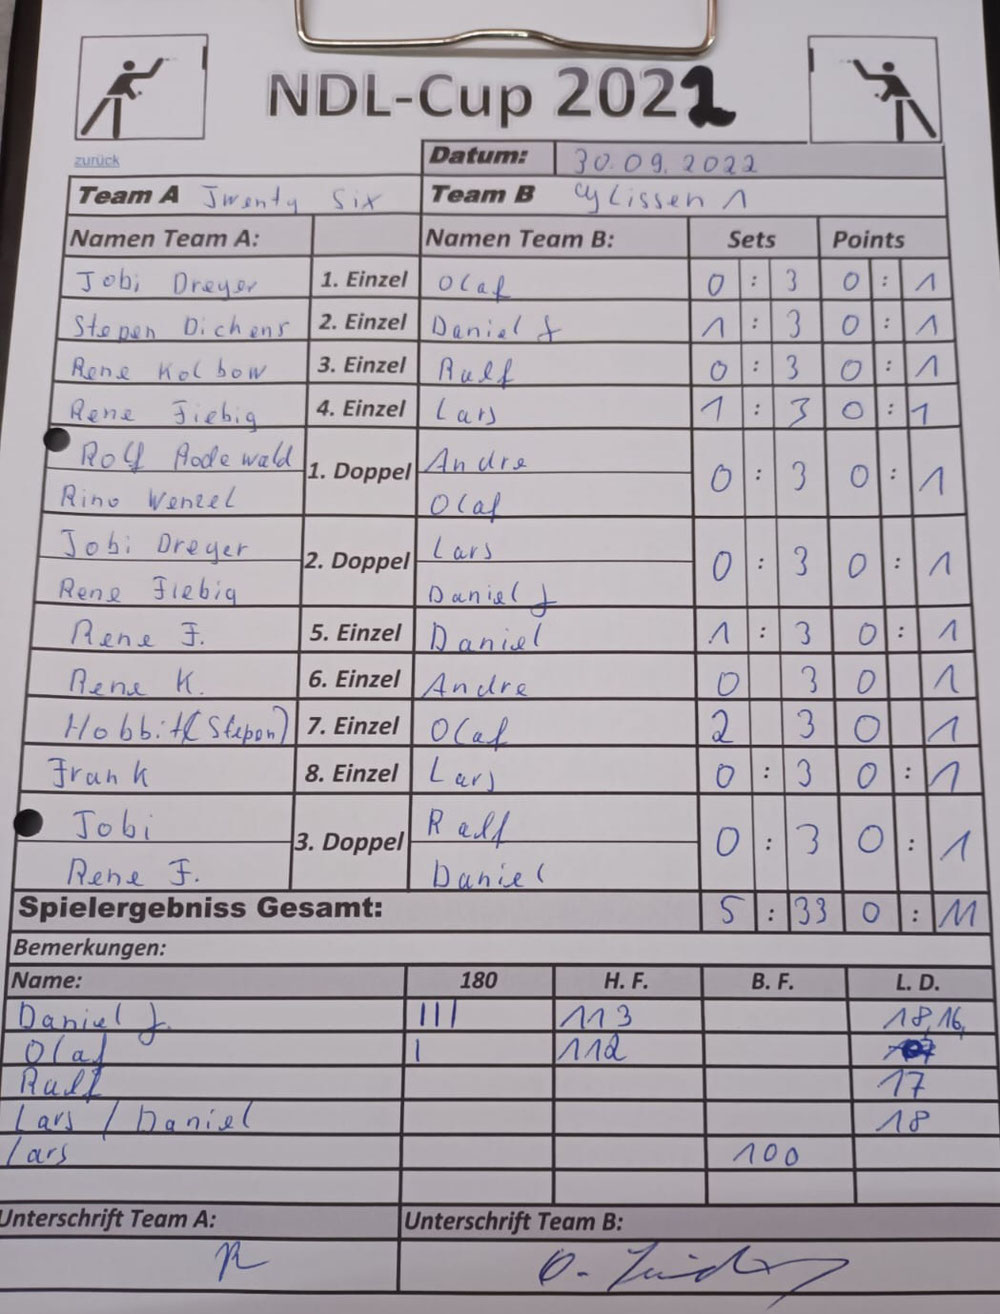 NDL-Cup 2022
zurück
Datum: 30.09.2022
Team A Twenty Six Team B Cylissen 1
Namen Team A: Namen Team B: Sets Points
Jobi Dreyer 1. Einzel Olaf 0 : 3 0 : 1
Stepen Dichens 2. Einzel Daniel J 1 : 3 0 : 1
Rene Kolbow 3. Einzel Ralf 0 : 3 0 : 1
Rene Fiebig 4. Einzel Lars 1 : 3 0 : 1
Rolf Rodewald 1. Doppel Andre 0 : 3 0 : 1
Rino Wenzel Olaf
Jobi Dreyer 2. Doppel Lars 0 : 3 0 : 1
Rene Fiebig Daniel J
Rene F. 5. Einzel Daniel 1 : 3 0 : 1
Rene K. 6. Einzel Andre 0 3 0 1
Hobbit (Stepen) 7. Einzel Olaf 2 3 0 1
Frank 8. Einzel Lars 0 : 3 0 : 1
Jobi 3. Doppel Ralf 0 : 3 0 : 1
Rene F. Daniel
Spielergebniss Gesamt: 5 : 33 0 : 11
Bemerkungen:
Name: 180 H. F. B. F. L. D.
Daniel J. III 113 18,16,
Olaf I 112
Ralf 17
Lars / Daniel 18
Lars 100
Unterschrift Team A: Unterschrift Team B: